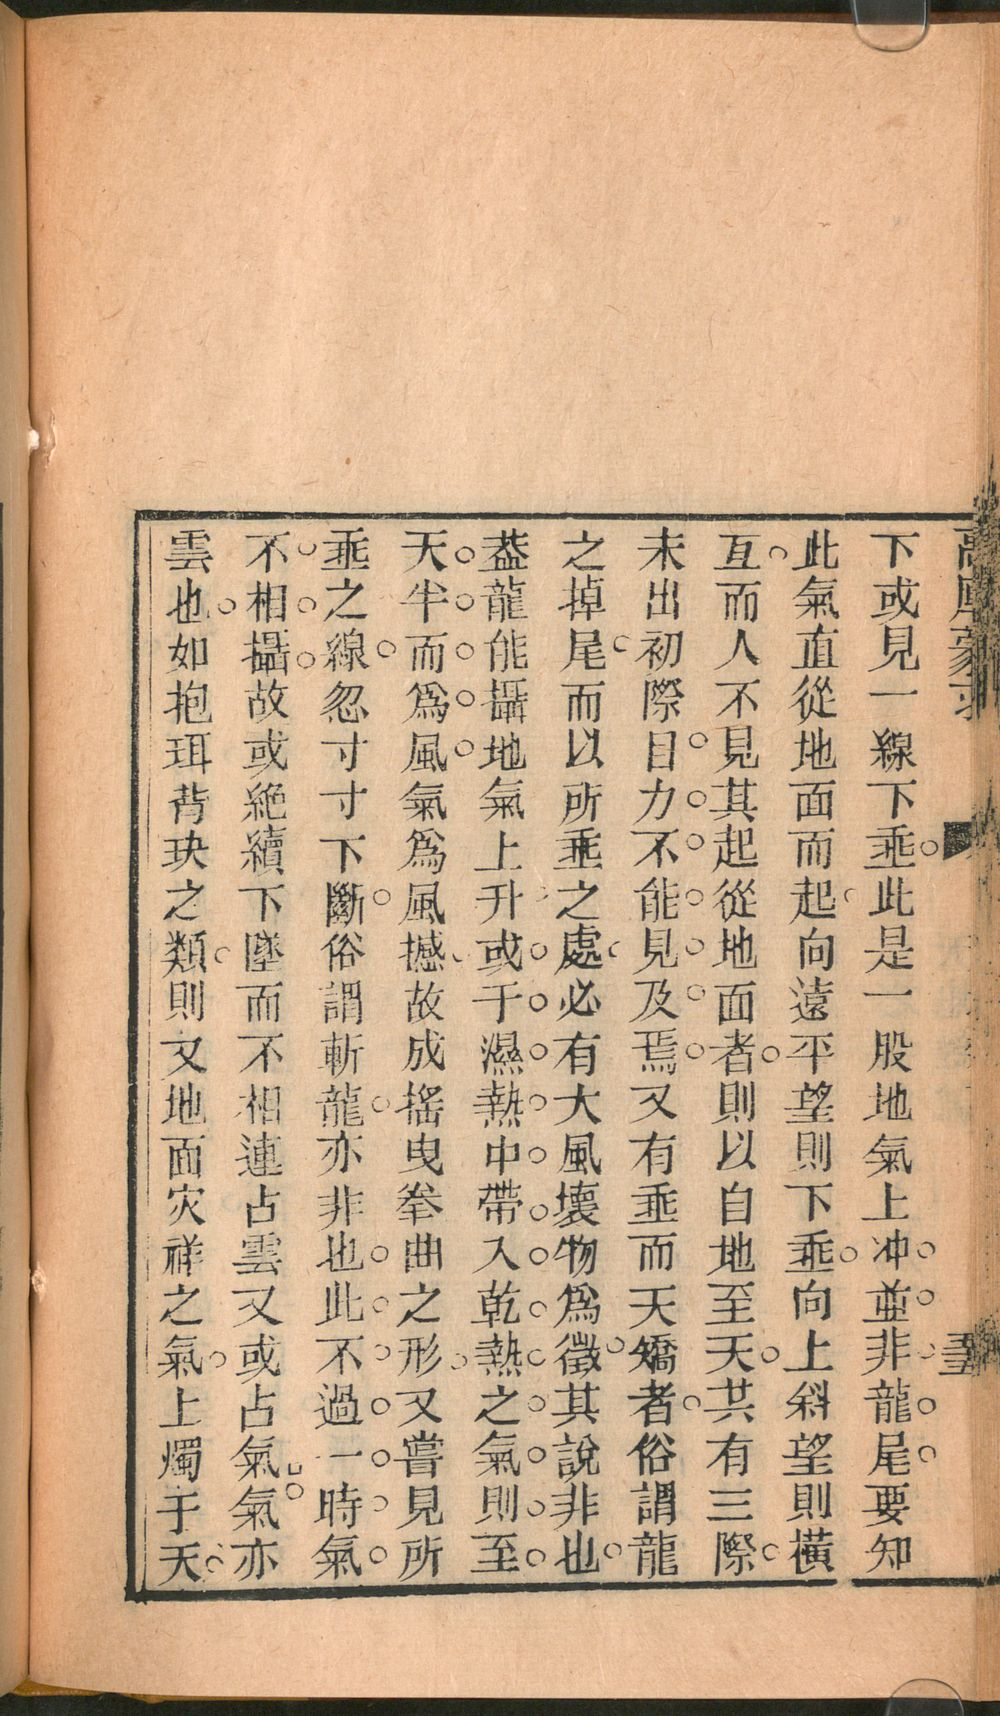 下或見一線下垂此是一股地氣上冲並非龍尾要知
此氣直從地面而起向遠平望則下垂向上斜望則橫
亙而人不見其起從地面者則以自地至天共有三際
未出初際目力不能見及焉又有垂而天矯者俗謂龍
之掉尾而以所垂之處必有大風壞物爲徵其說非也
葢龍能攝地氣上升或于濕熱中帶入乾熱之氣則至
天半而爲風氣爲風撼故成搖曳拳曲之形又嘗見所
垂之線忽寸寸下斷俗謂斬龍亦非也此不過一時氣
不相攝故或絶續下墜而不相連占雲又或占氣氣亦
雲也如抱珥背玦之類則又地面灾祥之氣上燭于天